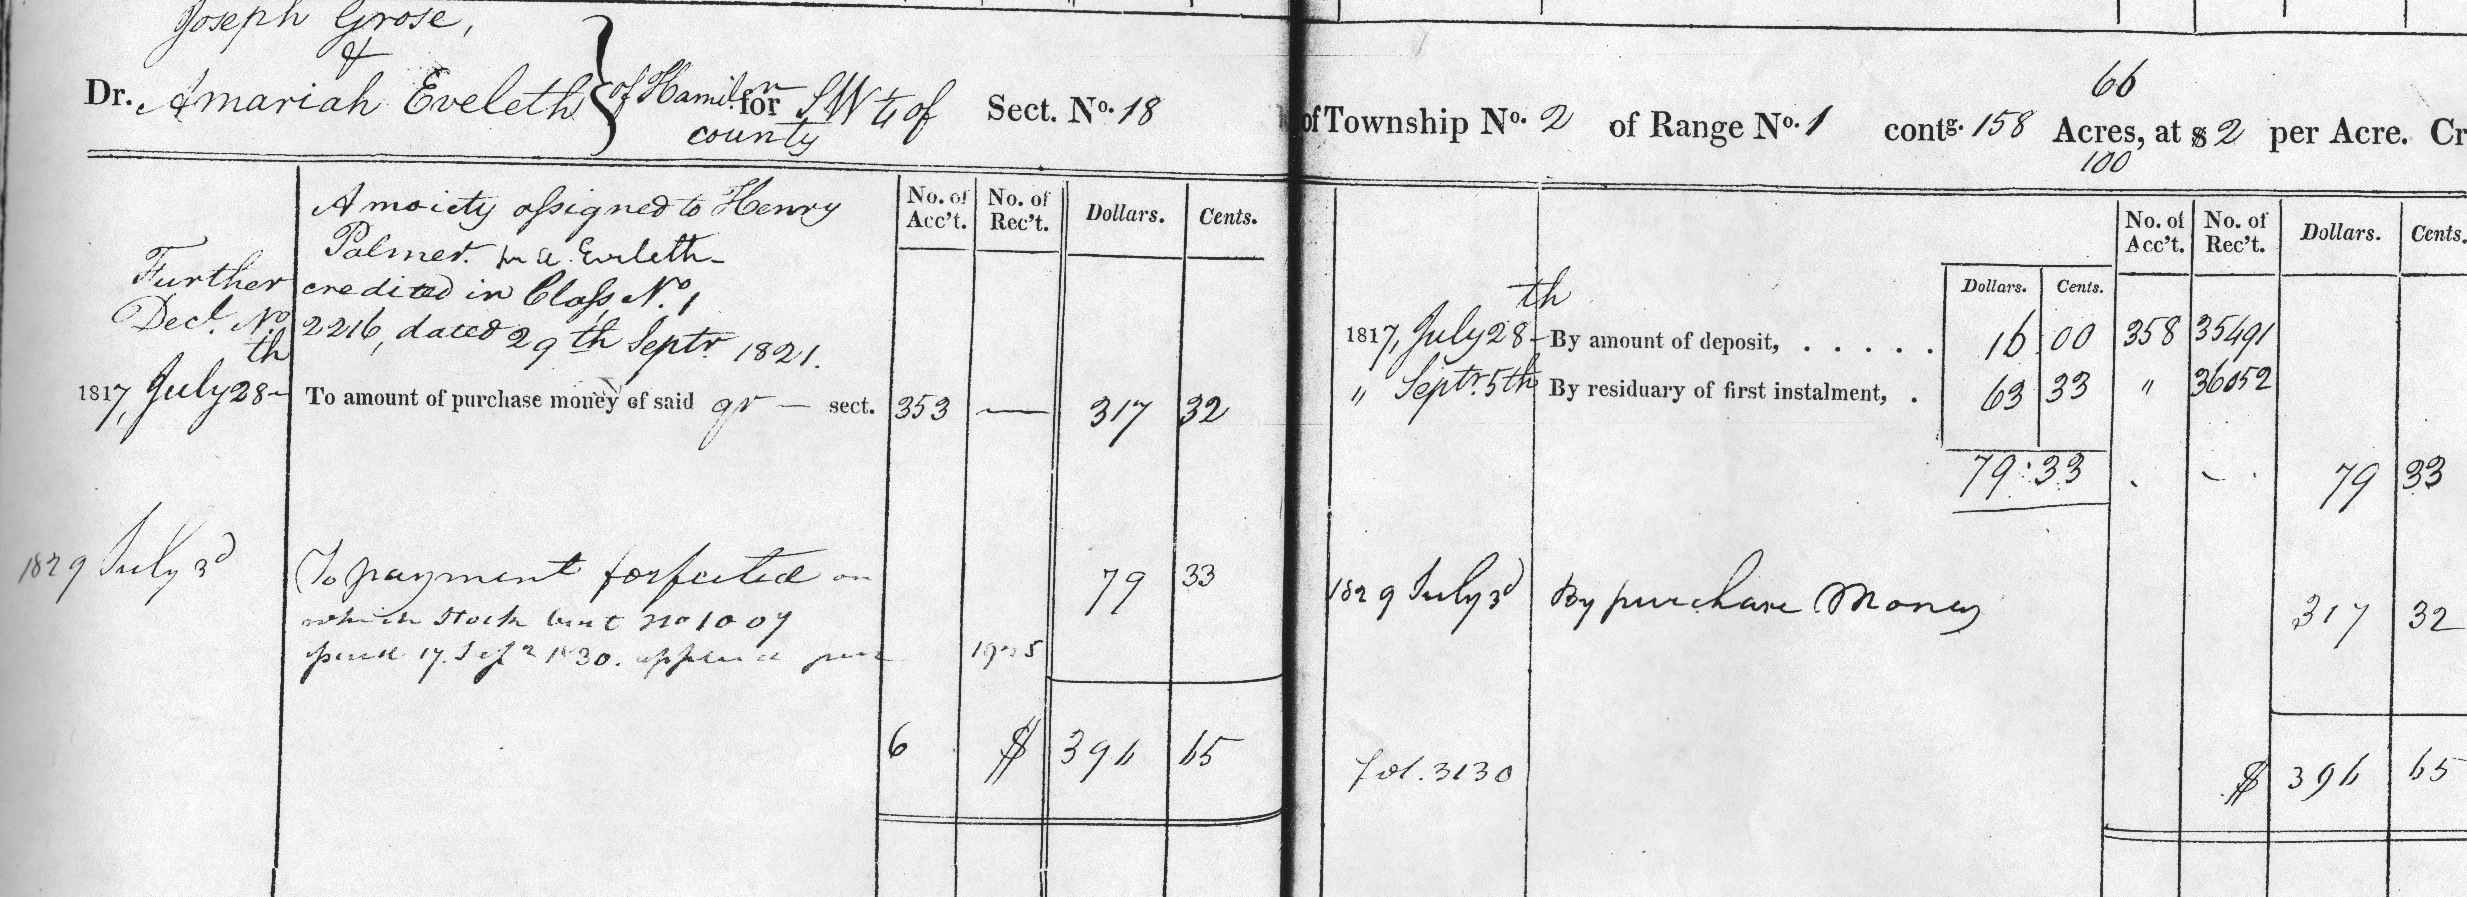 Joseph Grose,
&
Dr. Amariah Eveleth } of Hamiln for SW ¼ of Sect. No. 18
county
of Township No. 2 of Range No. 1 contg. 158 66/100 Acres, at $ 2 per Acre. Cr
A moiety assigned to Henry
Palmer. pr A. Eveleth
Further credited in Class No. 1
Decl. No. 2216, dated 29th Septr. 1821.
No. of Acc't. No. of Rec't. Dollars. Cents.
1817, July 28th To amount of purchase money of said qr — sect. 353 — 317 32
1829 July 3d To payment forfeited on 79 33
which Stock
17. 1830.
6 $ 396 65
No. of Acc't. No. of Rec't. Dollars. Cents.
Dollars. Cents.
1817, July 28th By amount of deposit, . . . . . 16 00 358 35491
" Septr. 5th By residuary of first instalment, . 63 33 " 36052
79.33 . - . 79 33
1829 July 3d By purchase Money 317 32
Fol. 3130 $ 396 65